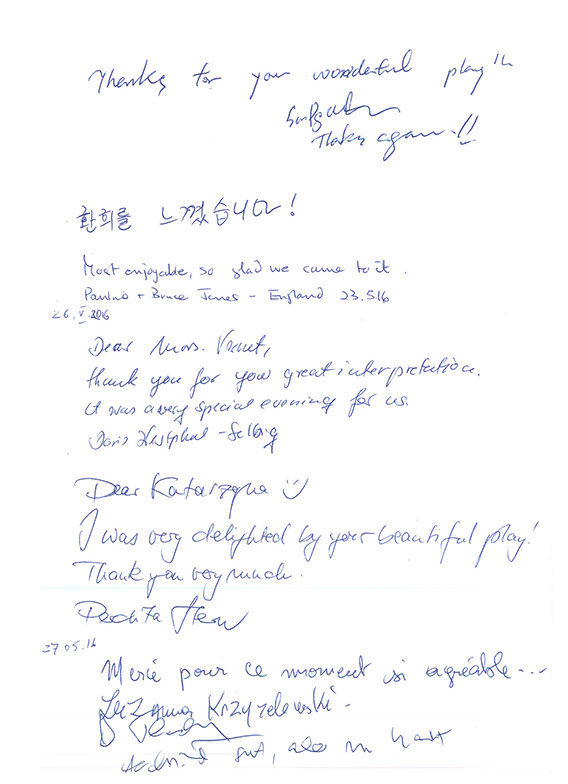 Thanks for your wonderful play!!
Thanks again!!
환희를 느꼈습니다!
Most enjoyable, so glad we came to it.
+ Bruce Jones - England 23.5.16
26.V.2016
Dear Mrs.
thank you for your great interpretation.
it was a very special evening for us.
Doris Westphal-
Dear Katarzyna
I was very delighted by your beautiful play!
Thank you very much.
27.05.16
Merci pour ce moment si agréable...